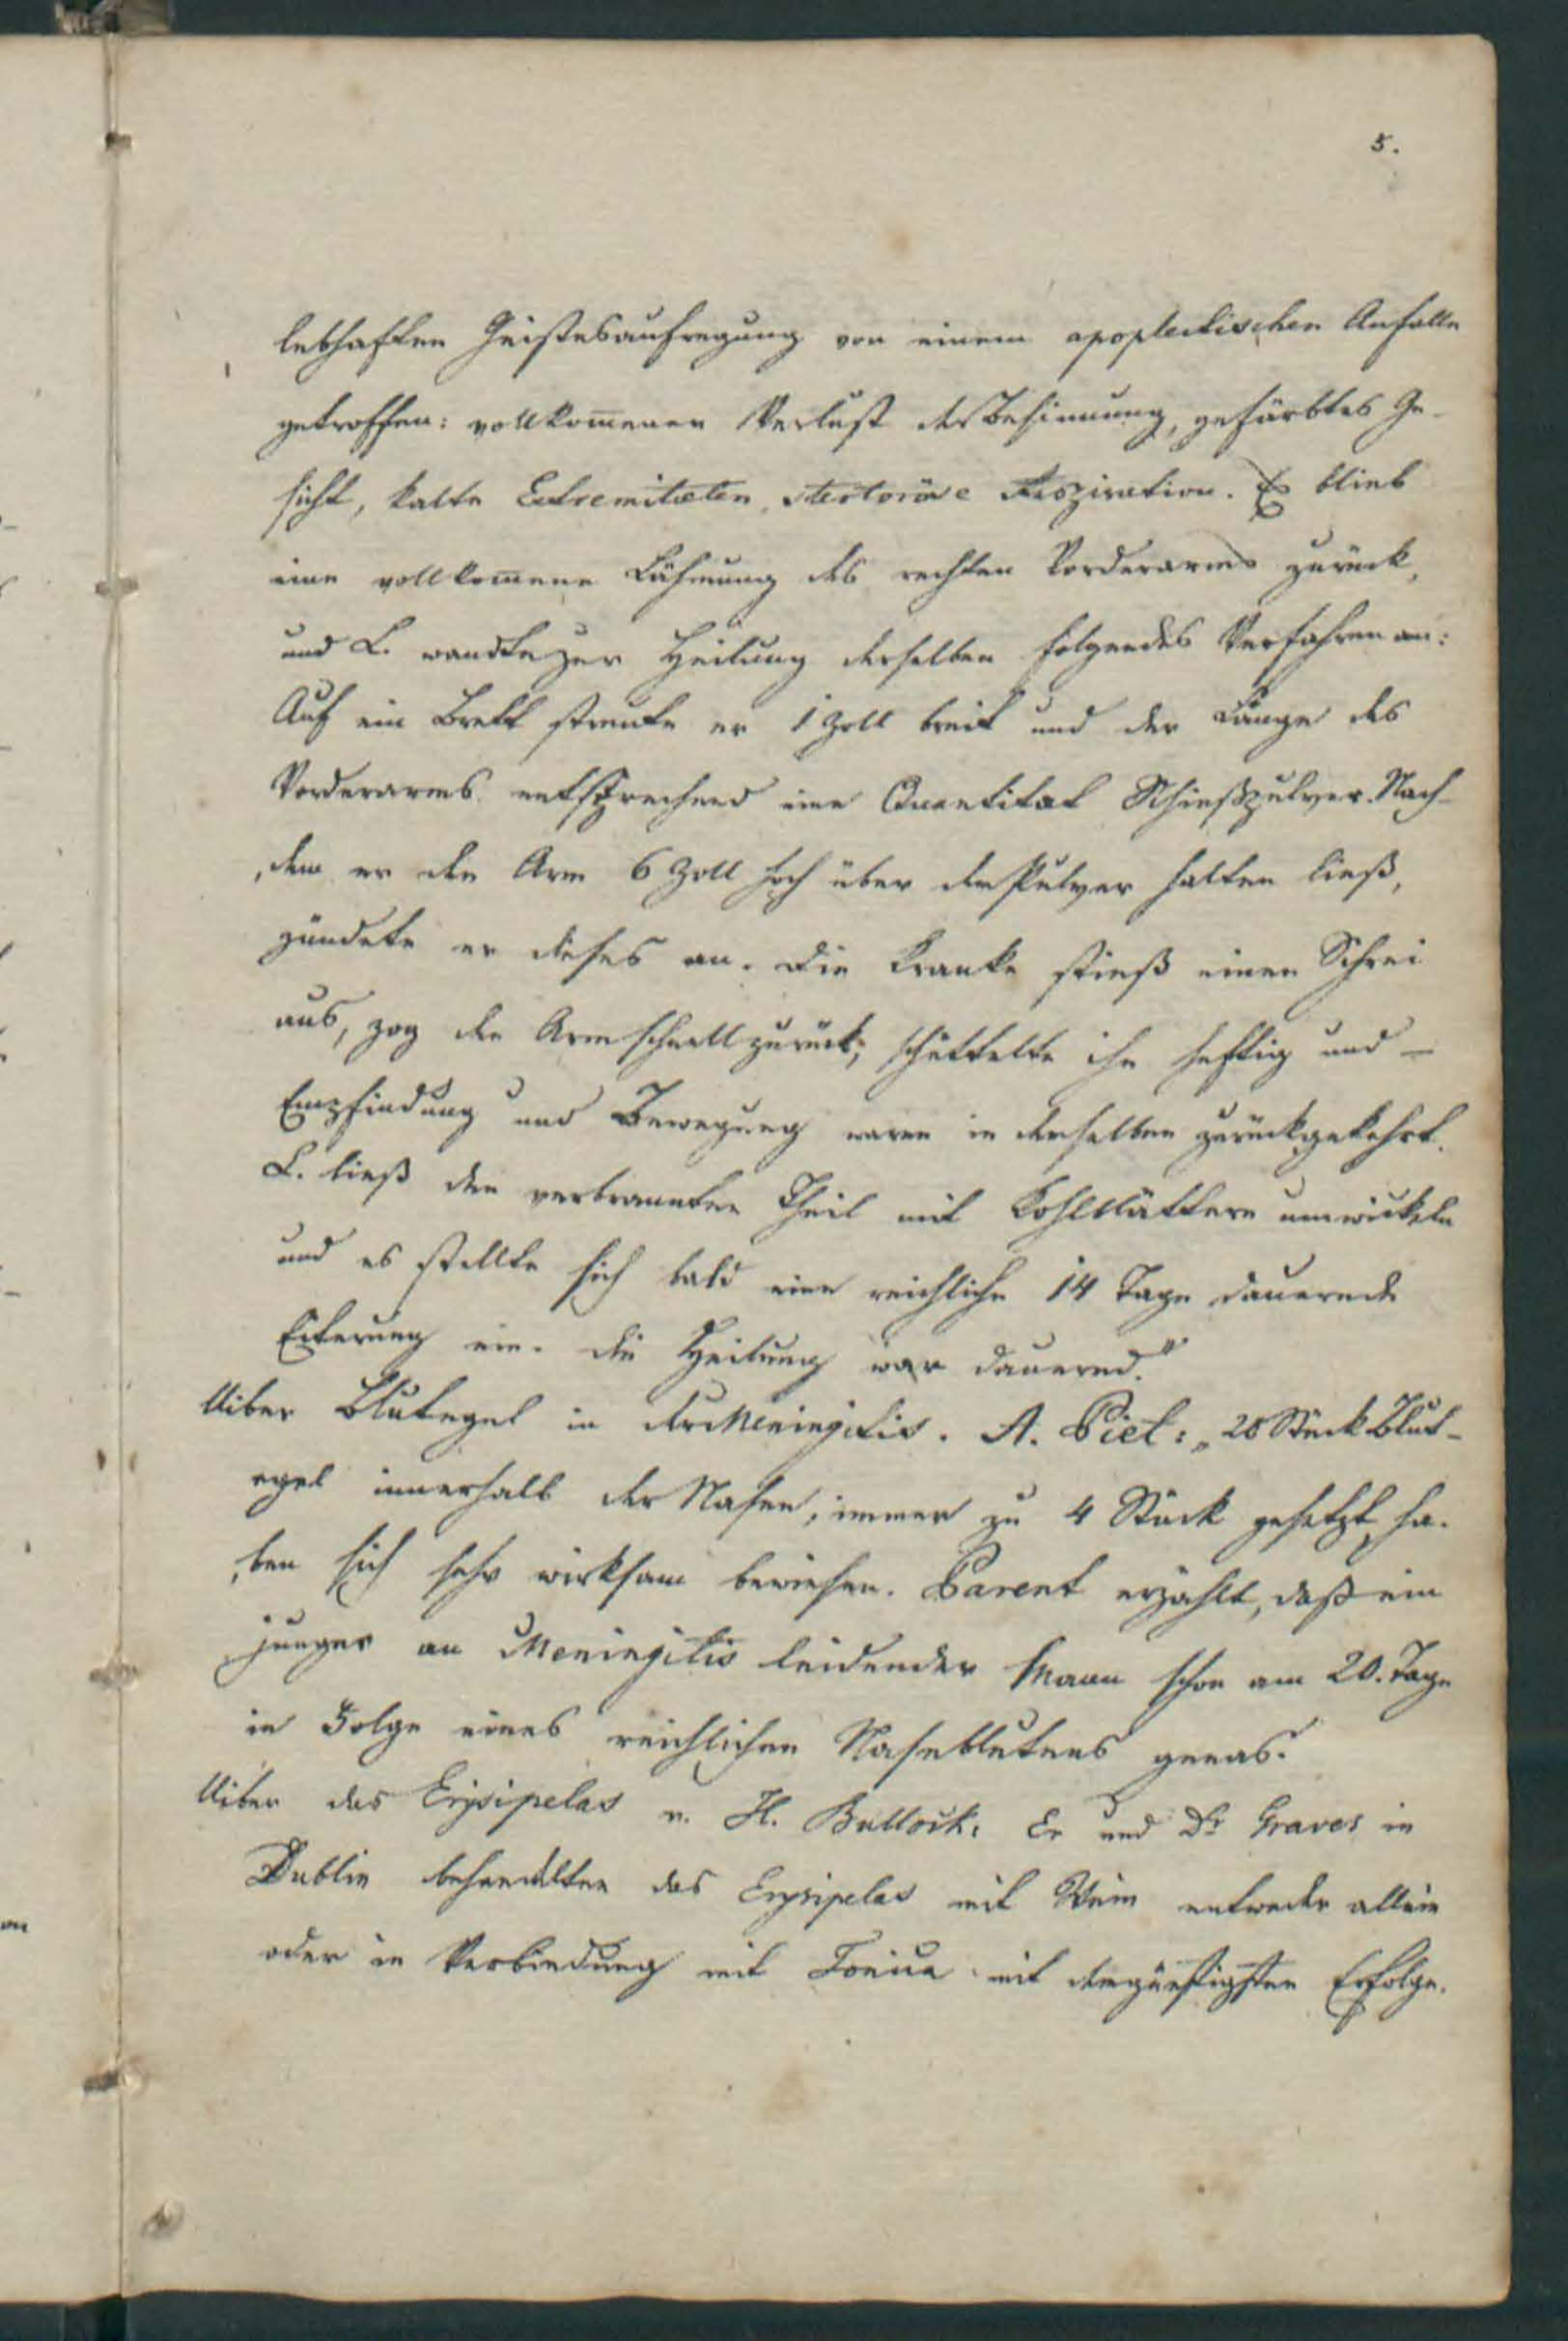 5.
lebhaften Geistesaufregung von einem apoplectischen Anfalle
getroffen: vollkom̅enen Verlust der Besinnung, gefärbtes Ge-
sicht, kalte Extremitæten, stertoröse Respiration. Es blieb
eine vollkom̅ene Lähmung des rechten Vorderarms zurück,
und L. wandte zur Heilung derselben folgendes Verfahren an:
Auf ein Brett streute er 1 Zoll breit und der Länge des
Vorderarms entsprechend eine Quantität Schießpulver. Nach-
dem er den Arm 6 Zoll hoch über dem Pulver halten ließ,
zündete er dieses an. Die Kranke stieß einen Schrei
aus, zog den Arm schnell zurück, schüttelte ihn heftig und –
Empfindung und Bewegung waren in demselben zurückgekehrt.
L. ließ den verbrannten Theil mit Kohlblättern umwickeln
und es stellte sich bald eine reichliche 14 Tage dauernde
Eiterung ein. Die Heilung war dauernd."
Uiber Blutegel in der Meningitis. A. Piet: „20 Stück Blut-
egel innerhalb der Nasen, immer zu 4 Stück gesetzt ha-
ben sich sehr wirksam bewiesen. Parent erzählt, daß ein
junger an Meningitis leidender Mann schon am 20. Tage
in Folge eines reichlichen Nasenblutens genas.
Uiber das Erysipelas v. H. Bullock: Er und Dr Graves in
Dublin behandelten das Erysipelas mit Wein entweder allein
oder in Verbindung mit Tonica mit dem günstigsten Erfolge.